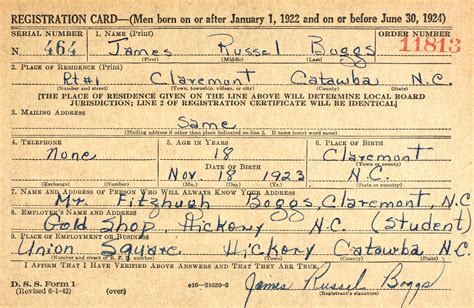 REGISTRATION CARD—(Men born on or after January 1, 1922 and on or before June 30, 1924)
SERIAL NUMBER 1. NAME (Print) ORDER NUMBER
N 464 James Russel Boggs 11813
(First) (Middle) (Last)
2. PLACE OF RESIDENCE (Print)
Rt#1 Claremont Catawba N.C.
(Number and street) (Town, township, village, or city) (County) (State)
[THE PLACE OF RESIDENCE GIVEN ON THE LINE ABOVE WILL DETERMINE LOCAL BOARD
JURISDICTION; LINE 2 OF REGISTRATION CERTIFICATE WILL BE IDENTICAL]
3. MAILING ADDRESS
Same
(Mailing address if other than place indicated on line 2. If same insert word same)
4. TELEPHONE 5. AGE IN YEARS 6. PLACE OF BIRTH
None 18 Claremont
DATE OF BIRTH (Town or county)
Nov. 18 1923 N.C.
(Exchange) (Number) (Mo.) (Day) (Yr.) (State or country)
7. NAME AND ADDRESS OF PERSON WHO WILL ALWAYS KNOW YOUR ADDRESS
Mr. Fitzhugh Boggs, Claremont, N.C
8. EMPLOYER'S NAME AND ADDRESS
Gold Shop, Hickory N.C. (Student)
9. PLACE OF EMPLOYMENT OR BUSINESS
Union Square Hickory Catawba N.C.
(Number and street or R. F. D. number) (Town) (County) (State)
I AFFIRM THAT I HAVE VERIFIED ABOVE ANSWERS AND THAT THEY ARE TRUE.
D. S. S. Form 1
(Revised 6-1-42) (over) James Russel Boggs